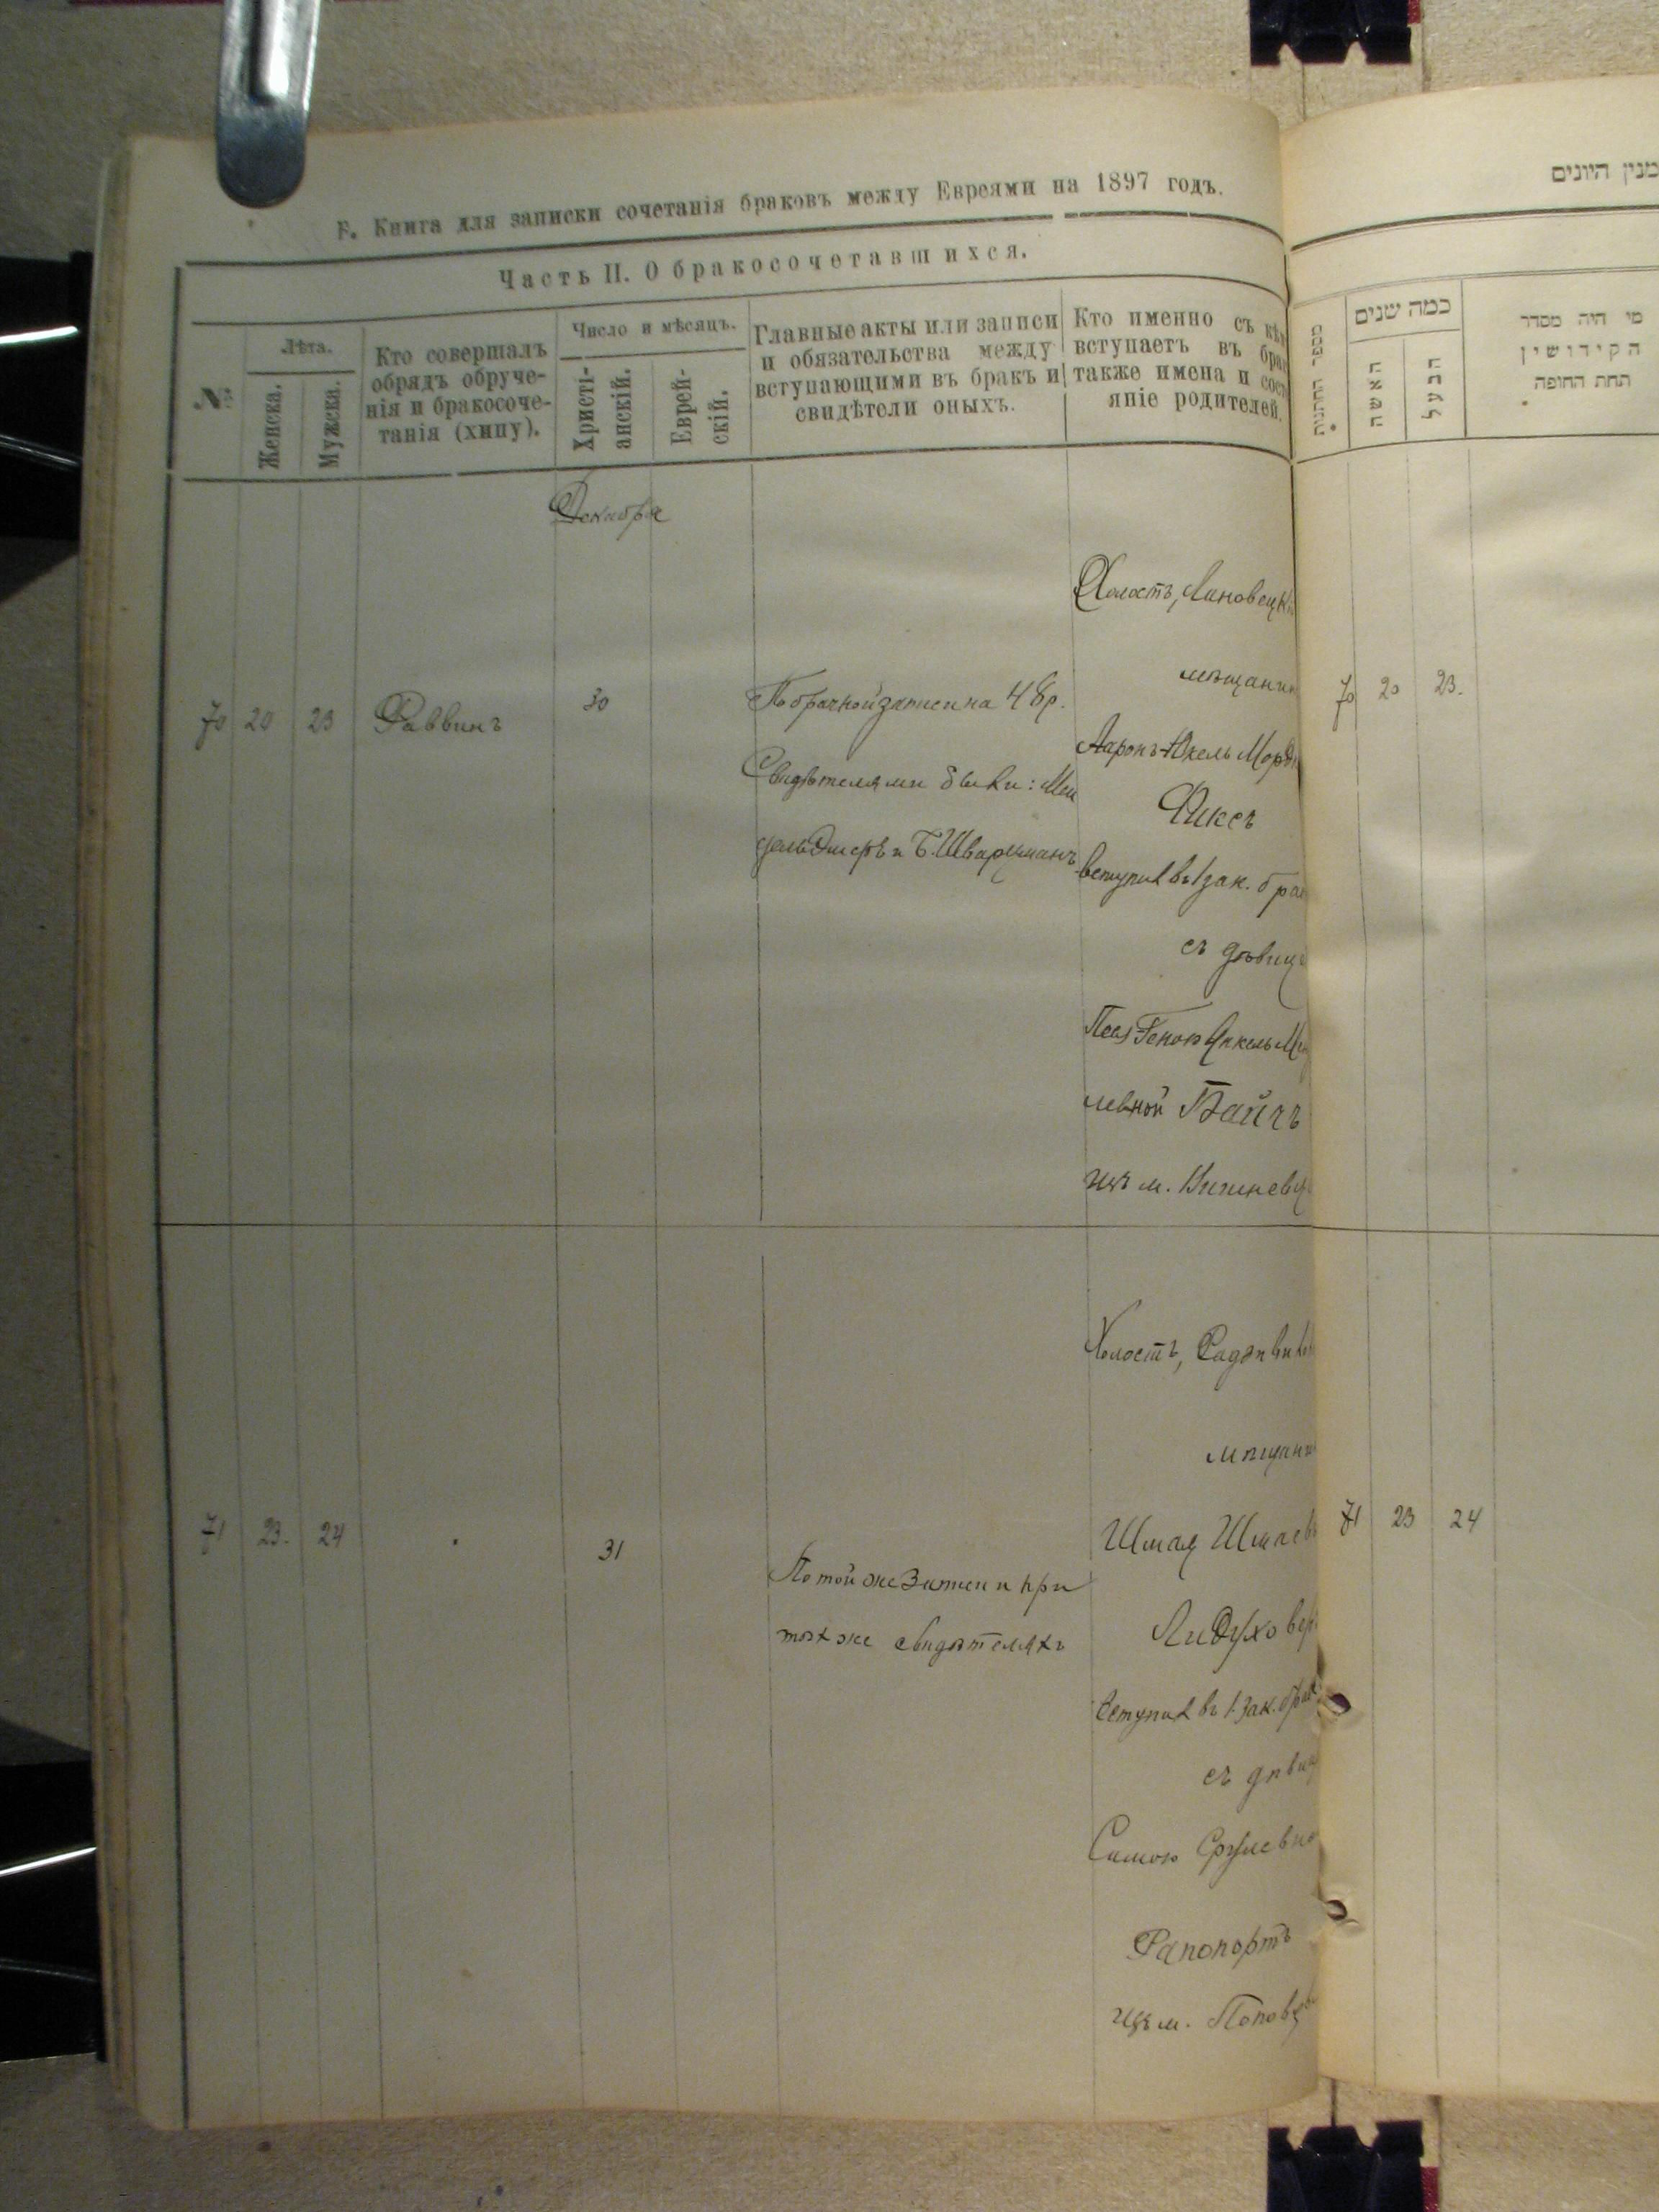 Е. Книга для записки сочетанія браковъ между Евреями на 1897 годъ.
Часть II. О бракосочетавшихся.
№
Лѣта.
Женска.
Мужска.
Кто совершалъ
обрядъ обруче-
нія и бракосоче-
танія (хипу).
Число и мѣсяцъ.
Христі-
анскій.
Еврей-
скій.
Главные акты или записи
и обязательства между
вступающими въ бракъ и
свидѣтели оныхъ.
Кто именно съ кѣм
вступаетъ въ брак
также имена и сост
яніе родителей.
Декабря
70 20 23 Раввинъ 30
По брачной записи на 48 р.
Свидѣтелями были: Мен
дель и Б. Шварцманъ
Холостъ, Лановецкі
мѣщанин
Ааронъ-Юкель Мордк
Фиксъ
вступил въ 1 зак. брак
съ дѣвице
Янкель М
левной Байчъ
изъ м. Вишневц
71 23. 24 31
По той же записи и при
тѣх же свидѣтеляхъ
Холостъ, Радзивил
мѣщанин
Шмая Шмаев
Лидухове
вступил въ 1 зак. брак
съ дѣвиц
Симою Срулевно
Рапопортъ
изъ м. Попов
מנין היונים
מספר החתונות
כמה שנים
האשה
הבעל
מי היה מסדר
הקידושין
תחת החופה
70 20 23.
71 23 24